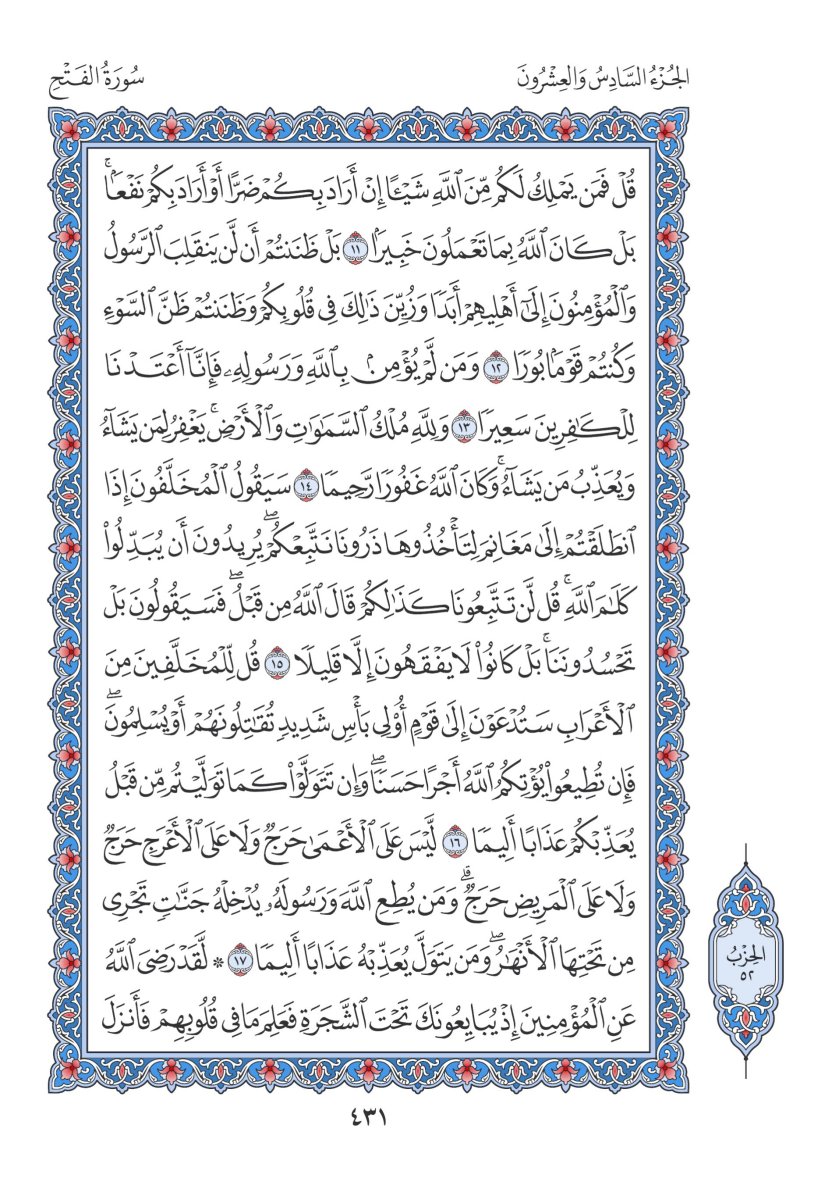 الجُزْءُ السَّادِسُ وَالعِشْرُونَ
سُورَةُ الفَتْحِ
قُلْ فَمَن يَمْلِكُ لَكُم مِّنَ ٱللَّهِ شَيْـًٔا إِنْ أَرَادَ بِكُمْ ضَرًّا أَوْ أَرَادَ بِكُمْ نَفْعَۢاۚ
بَلْ كَانَ ٱللَّهُ بِمَا تَعْمَلُونَ خَبِيرَۢا ١١ بَلْ ظَنَنتُمْ أَن لَّن يَنقَلِبَ ٱلرَّسُولُ
وَٱلْمُؤْمِنُونَ إِلَىٰٓ أَهْلِيهِمْ أَبَدًا وَزُيِّنَ ذَٰلِكَ فِى قُلُوبِكُمْ وَظَنَنتُمْ ظَنَّ ٱلسَّوْءِ
وَكُنتُمْ قَوْمَۢا بُورًا ١٢ وَمَن لَّمْ يُؤْمِنۢ بِٱللَّهِ وَرَسُولِهِۦ فَإِنَّآ أَعْتَدْنَا
لِلْكَٰفِرِينَ سَعِيرًا ١٣ وَلِلَّهِ مُلْكُ ٱلسَّمَٰوَٰتِ وَٱلْأَرْضِۚ يَغْفِرُ لِمَن يَشَآءُ
وَيُعَذِّبُ مَن يَشَآءُۚ وَكَانَ ٱللَّهُ غَفُورًا رَّحِيمًا ١٤ سَيَقُولُ ٱلْمُخَلَّفُونَ إِذَا
ٱنطَلَقْتُمْ إِلَىٰ مَغَانِمَ لِتَأْخُذُوهَا ذَرُونَا نَتَّبِعْكُمْۖ يُرِيدُونَ أَن يُبَدِّلُوا۟
كَلَٰمَ ٱللَّهِۚ قُل لَّن تَتَّبِعُونَا كَذَٰلِكُمْ قَالَ ٱللَّهُ مِن قَبْلُۖ فَسَيَقُولُونَ بَلْ
تَحْسُدُونَنَاۚ بَلْ كَانُوا۟ لَا يَفْقَهُونَ إِلَّا قَلِيلًا ١٥ قُل لِّلْمُخَلَّفِينَ مِنَ
ٱلْأَعْرَابِ سَتُدْعَوْنَ إِلَىٰ قَوْمٍ أُو۟لِى بَأْسٍ شَدِيدٍ تُقَٰتِلُونَهُمْ أَوْ يُسْلِمُونَۖ
فَإِن تُطِيعُوا۟ يُؤْتِكُمُ ٱللَّهُ أَجْرًا حَسَنًاۖ وَإِن تَتَوَلَّوْا۟ كَمَا تَوَلَّيْتُم مِّن قَبْلُ
يُعَذِّبْكُمْ عَذَابًا أَلِيمًا ١٦ لَّيْسَ عَلَى ٱلْأَعْمَىٰ حَرَجٌ وَلَا عَلَى ٱلْأَعْرَجِ حَرَجٌ
وَلَا عَلَى ٱلْمَرِيضِ حَرَجٌۗ وَمَن يُطِعِ ٱللَّهَ وَرَسُولَهُۥ يُدْخِلْهُ جَنَّٰتٍ تَجْرِى
مِن تَحْتِهَا ٱلْأَنْهَٰرُۖ وَمَن يَتَوَلَّ يُعَذِّبْهُ عَذَابًا أَلِيمًا ١٧ * لَّقَدْ رَضِىَ ٱللَّهُ
عَنِ ٱلْمُؤْمِنِينَ إِذْ يُبَايِعُونَكَ تَحْتَ ٱلشَّجَرَةِ فَعَلِمَ مَا فِى قُلُوبِهِمْ فَأَنزَلَ
الحِزْبُ
٥٢
٤٣١